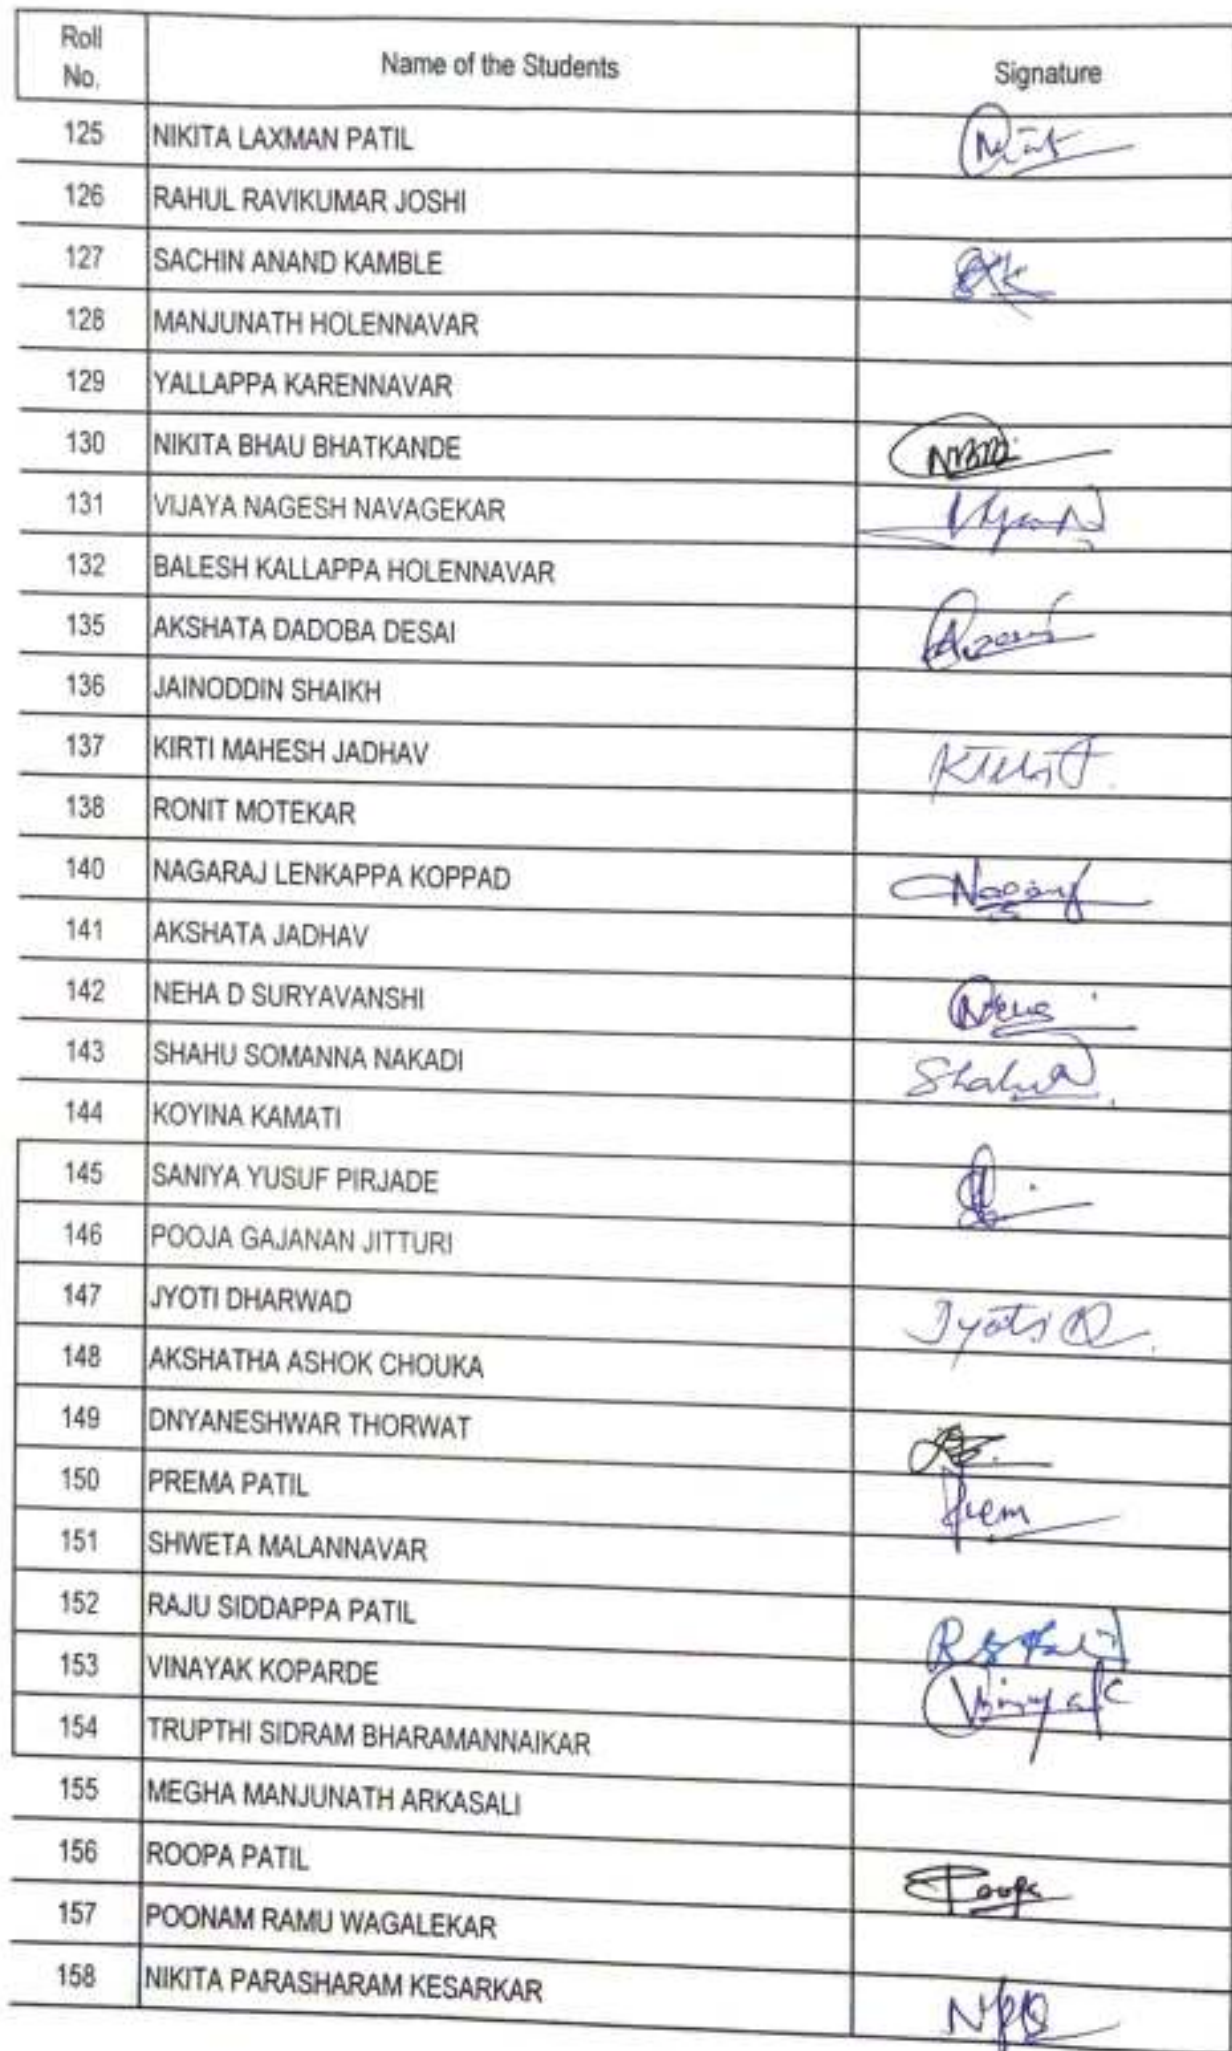 Roll No. Name of the Students Signature
125 NIKITA LAXMAN PATIL
126 RAHUL RAVIKUMAR JOSHI
127 SACHIN ANAND KAMBLE
128 MANJUNATH HOLENNAVAR
129 YALLAPPA KARENNAVAR
130 NIKITA BHAU BHATKANDE
131 VIJAYA NAGESH NAVAGEKAR
132 BALESH KALLAPPA HOLENNAVAR
135 AKSHATA DADOBA DESAI
136 JAINODDIN SHAIKH
137 KIRTI MAHESH JADHAV
138 RONIT MOTEKAR
140 NAGARAJ LENKAPPA KOPPAD
141 AKSHATA JADHAV
142 NEHA D SURYAVANSHI
143 SHAHU SOMANNA NAKADI
144 KOYINA KAMATI
145 SANIYA YUSUF PIRJADE
146 POOJA GAJANAN JITTURI
147 JYOTI DHARWAD Jyoti D.
148 AKSHATHA ASHOK CHOUKA
149 DNYANESHWAR THORWAT
150 PREMA PATIL Prem
151 SHWETA MALANNAVAR
152 RAJU SIDDAPPA PATIL
153 VINAYAK KOPARDE
154 TRUPTHI SIDRAM BHARAMANNAIKAR
155 MEGHA MANJUNATH ARKASALI
156 ROOPA PATIL
157 POONAM RAMU WAGALEKAR
158 NIKITA PARASHARAM KESARKAR